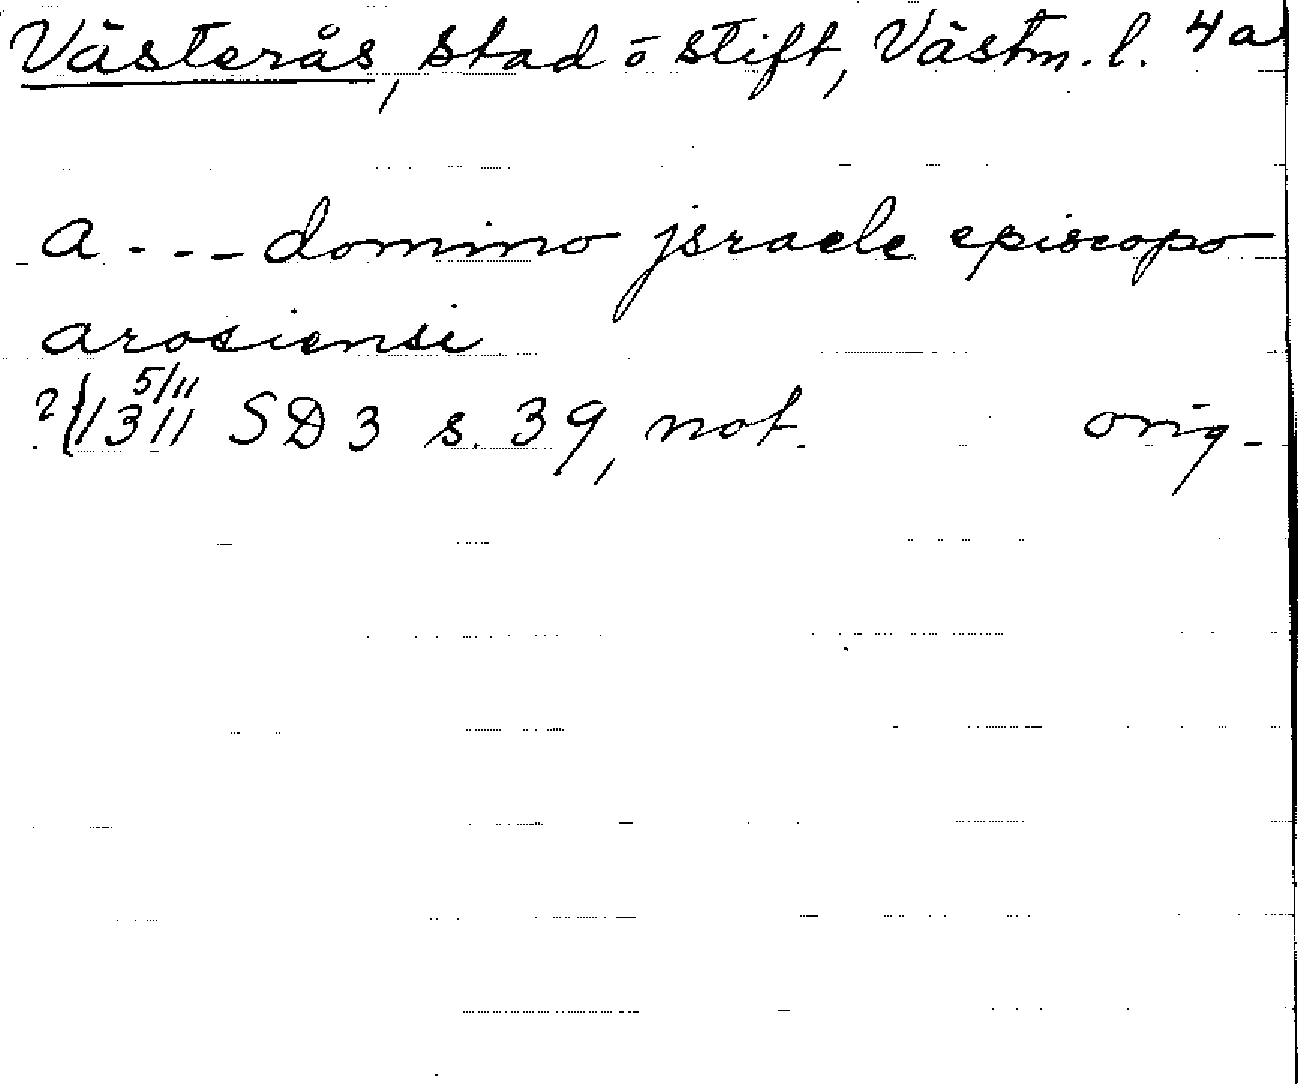 Västerås, stad o stift, Västm. l. 4a
a - - - domino jsraele episcopo
arosiensi
?( 5/11 1311 SD 3 s. 39, not. orig.